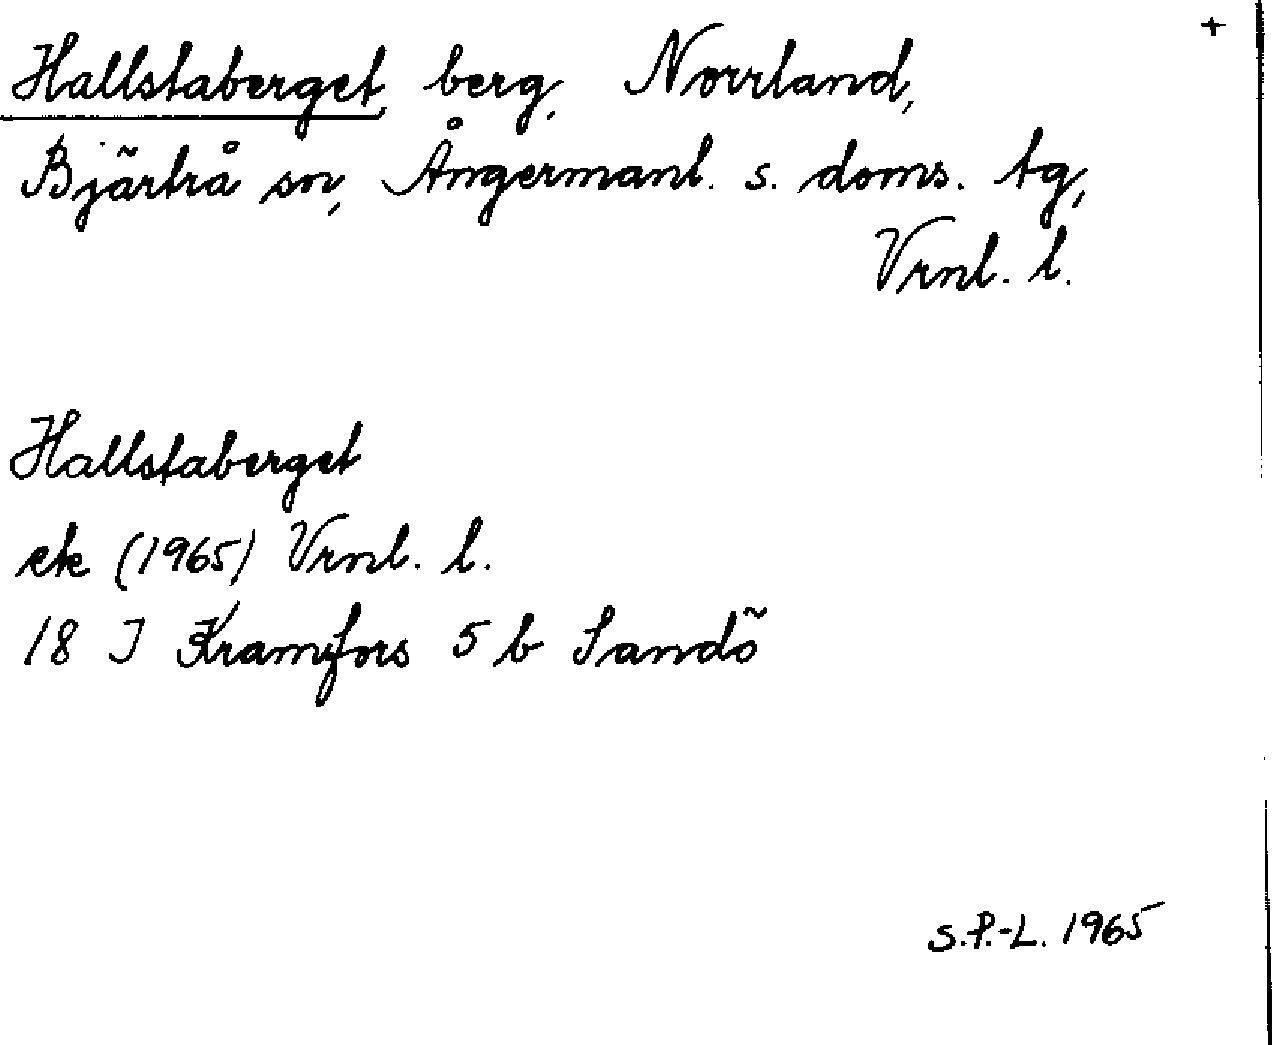 +
Hallstaberget, berg, Norrland,
Bjärtrå sn, Ångermanl. s. doms. tg,
Vrnl. l.
Hallstaberget
ek (1965) Vrnl. l.
18 I Kramfors 5 b Sandö
S.P.-L. 1965